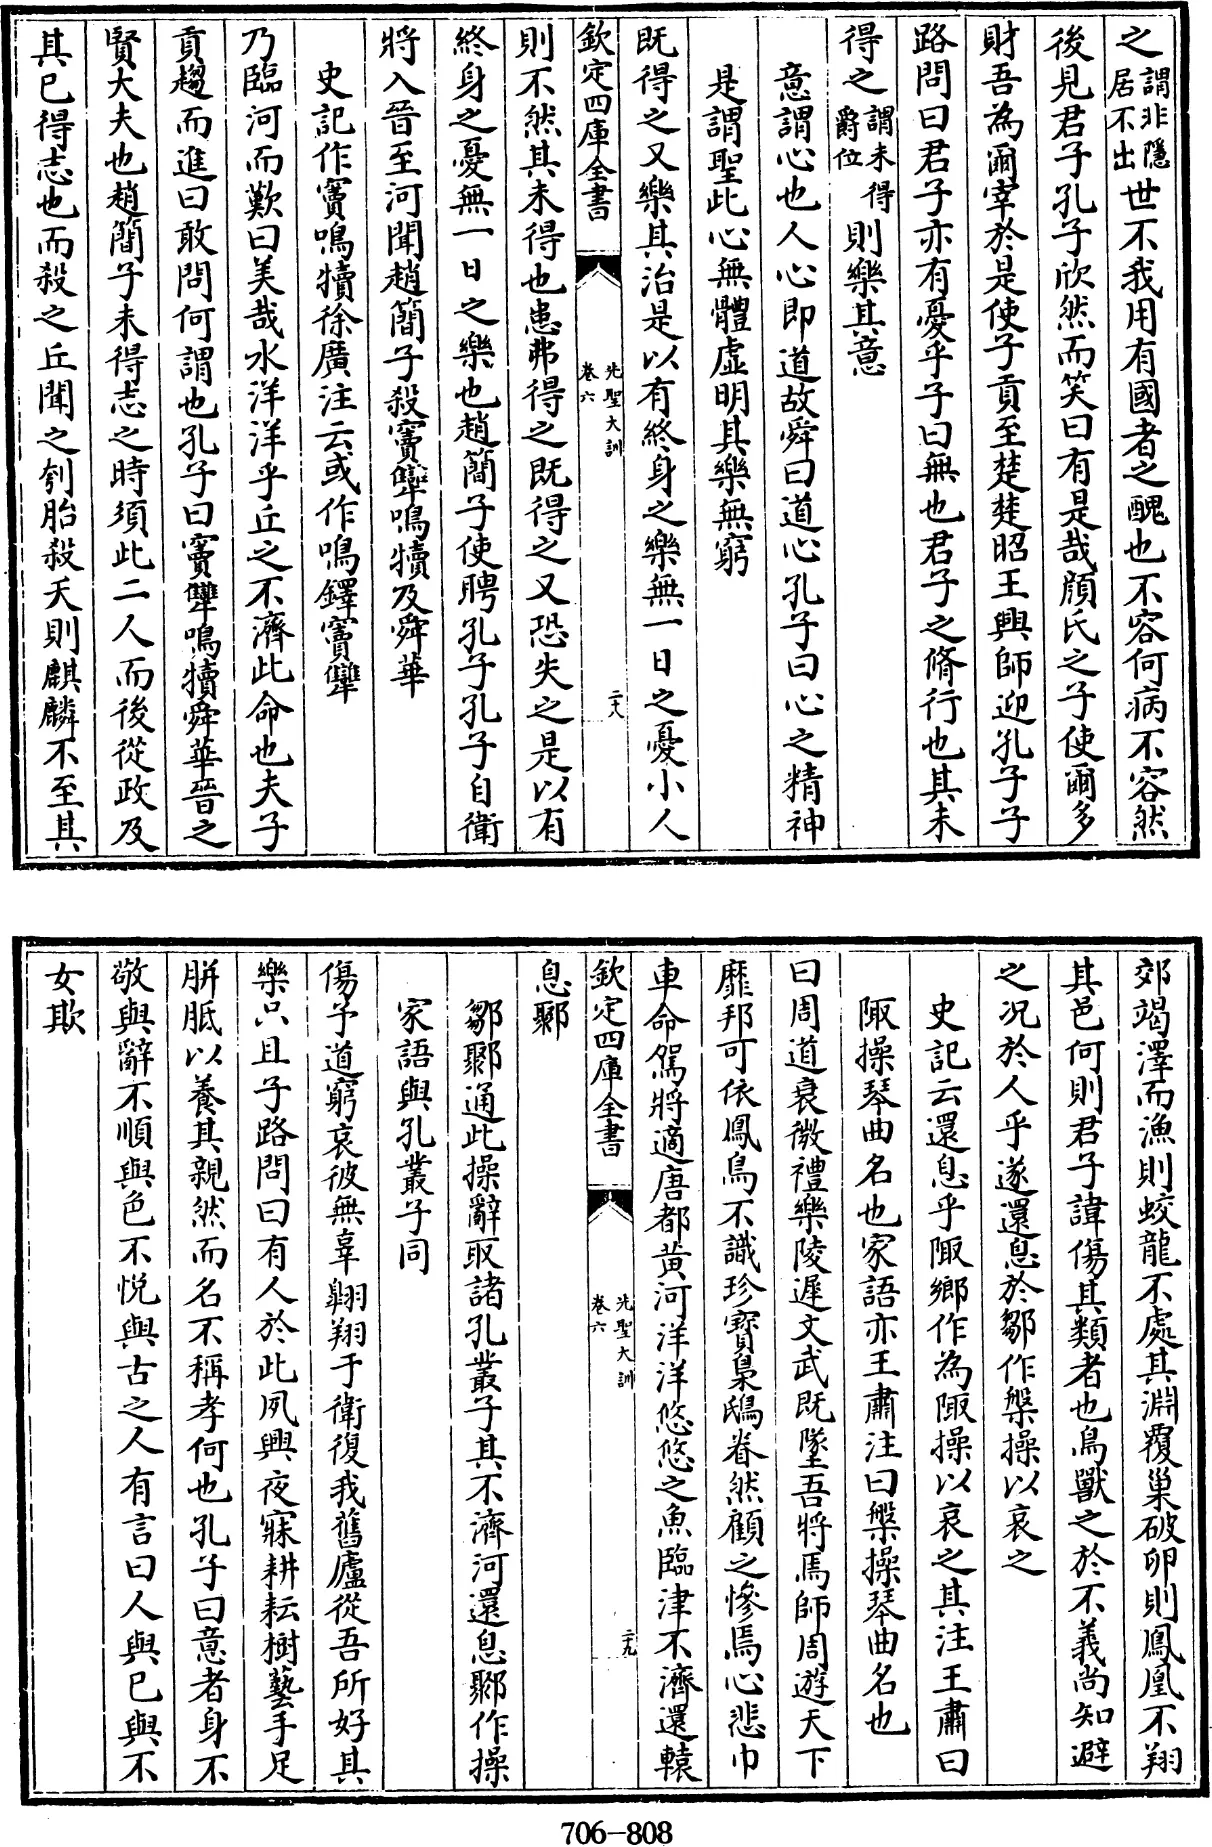 之謂非隱居不出世不我用有國者之醜也不容何病不容然
後見君子孔子欣然而笑曰有是哉顏氏之子使爾多
財吾為爾宰於是使子貢至楚楚昭王興師迎孔子子
路問曰君子亦有憂乎子曰無也君子之脩行也其未
得之謂未得爵位則樂其意
意謂心也人心即道故舜曰道心孔子曰心之精神
是謂聖此心無體虛明其樂無窮
既得之又樂其治是以有終身之樂無一日之憂小人
欽定四庫全書
先聖大訓
卷六
二十八
則不然其未得也患弗得之既得之又恐失之是以有
終身之憂無一日之樂也趙簡子使聘孔子孔子自衛
將入晉至河聞趙簡子殺竇犨鳴犢及舜華
史記作竇鳴犢徐廣注云或作鳴鐸竇犨
乃臨河而歎曰美哉水洋洋乎丘之不濟此命也夫子
貢趨而進曰敢問何謂也孔子曰竇犨鳴犢舜華晉之
賢大夫也趙簡子未得志之時須此二人而後從政及
其已得志也而殺之丘聞之刳胎殺夭則麒麟不至其
郊竭澤而漁則蛟龍不處其淵覆巢破卵則鳳凰不翔
其邑何則君子諱傷其類者也鳥獸之於不義尚知避
之況於人乎遂還息於鄒作槃操以哀之
史記云還息乎陬鄉作為陬操以哀之其注王肅曰
陬操琴曲名也家語亦王肅注曰槃操琴曲名也
曰周道衰微禮樂陵遲文武既墜吾將焉師周遊天下
靡邦可依鳳鳥不識珍寶梟鴟眷然顧之慘焉心悲巾
車命駕將適唐都黃河洋洋悠悠之魚臨津不濟還轅
欽定四庫全書
先聖大訓
卷六
二十九
息鄹
鄒鄹通此操辭取諸孔叢子其不濟河還息鄹作操
家語與孔叢子同
傷予道窮哀彼無辜翺翔于衛復我舊廬從吾所好其
樂只且子路問曰有人於此夙興夜寐耕耘樹藝手足
胼胝以養其親然而名不稱孝何也孔子曰意者身不
敬與辭不順與色不悅與古之人有言曰人與已與不
女欺
706-808